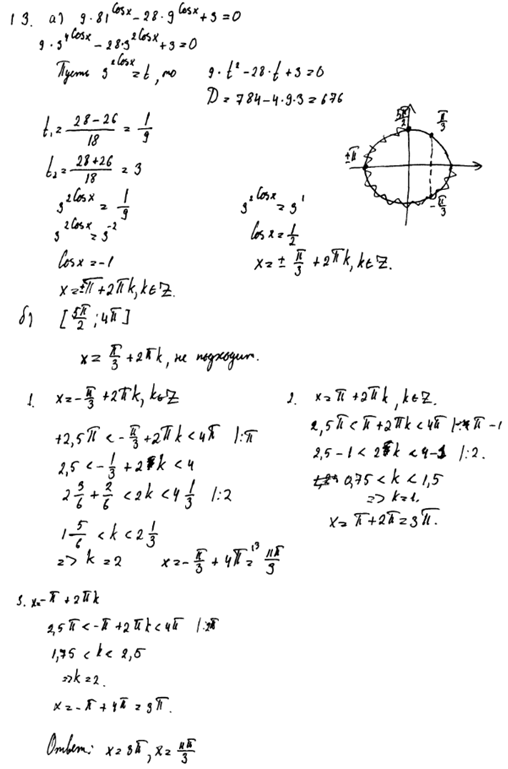 13. а) 9·81^cosx − 28·9^cosx + 3 = 0
9·3^4cosx − 28·3^2cosx + 3 = 0
Пусть 3^2cosx = t, то 9·t² − 28·t + 3 = 0
D = 784 − 4·9·3 = 676
t₁ = (28−26)/18 = 1/9
t₂ = (28+26)/18 = 3
3^2cosx = 1/9
3^2cosx = 3^−2
cosx = −1
x = ±π + 2πk, k∈Z.
3^2cosx = 3^1
cosx = 1/2
x = ± π/3 + 2πk, k∈Z.
5π/2
π/3
±π
−π/3
б) [5π/2; 4π]
x = π/3 + 2πk, не подходит.
1. x = −π/3 + 2πk, k∈Z
+2,5π < −π/3 + 2πk < 4π |:π
2,5 < −1/3 + 2k < 4
2 3/6 + 2/6 < 2k < 4 1/3 |:2
1 5/6 < k < 2 1/3
=> k = 2 x = −π/3 + 4π = 11π/3
2. x = π + 2πk, k∈Z.
2,5π < π + 2πk < 4π |:π −1
2,5−1 < 2k < 4−1 |:2.
0,75 < k < 1,5
=> k=1.
x = π + 2π = 3π.
3. x = −π + 2πk
2,5π < −π + 2πk < 4π |:2π
1,75 < k < 2,5
=> k=2.
x = −π + 4π = 3π.
Ответ: x = 3π, x = 11π/3